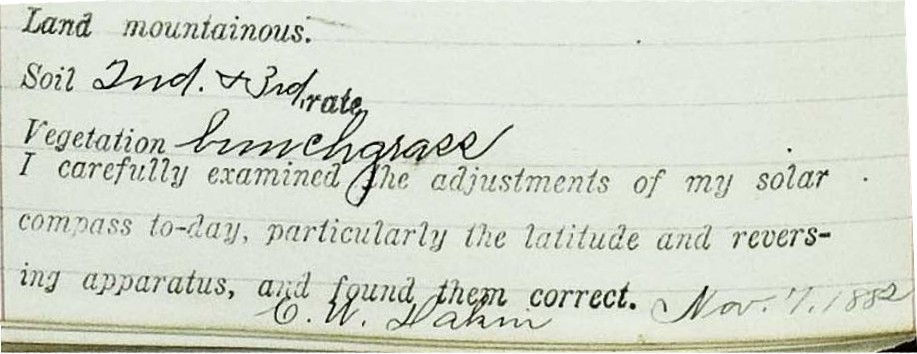 Land mountainous.
Soil 2nd. & 3rd. rate
Vegetation bunchgrass
I carefully examined the adjustments of my solar
compass to-day, particularly the latitude and revers-
ing apparatus, and found them correct. Nov. 7, 1882
E. W. Dakin